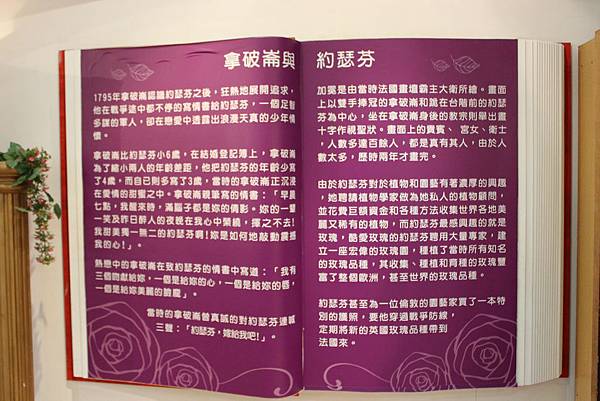 拿破崙與
1795年拿破崙認識約瑟芬之後，狂熱地展開追求，
他在戰爭途中都不停的寫情書給約瑟芬，一個足智
多謀的軍人，卻在戀愛中透露出浪漫天真的少年情
懷。
拿破崙比約瑟芬小6歲，在結婚登記簿上，拿破崙
為了縮小兩人的年齡差距，他把約瑟芬的年齡少寫
了4歲，而自己則多寫了3歲，當時的拿破崙正沉浸
在愛情的甜蜜之中。拿破崙親筆寫的情書：「早晨
七點，我醒來時，滿腦子都是妳的倩影。妳的一顰
一笑及昨日醉人的夜晚在我心中縈繞，揮之不去!
我甜美獨一無二的約瑟芬啊!妳是如何地敲動震撼
我的心!」。
熱戀中的拿破崙在致約瑟芬的情書中寫道：「我有
三個吻獻給妳，一個是給妳的心，一個是給妳的唇，
一個是給妳美麗的臉魔」。
當時的拿破崙曾真誠的對約瑟芬連喊
三聲：「約瑟芬，嫁給我吧!」。
約瑟芬
加冕是由當時法國畫壇霸主大衛所繪。畫面
上以雙手捧冠的拿破崙和跪在台階前的約瑟
芬為中心，坐在拿破崙身後的教宗則舉出畫
十字作視聖狀。畫面上的貴賓、宮女、衛士
，人數多達百餘人，都是真有其人，由於人
數太多，歷時兩年才畫完。
由於約瑟芬對於植物和園藝有著濃厚的興趣
，她聘請植物學家做為她私人的植物顧問，
並花費巨額資金和各種方法收集世界各地美
麗又稀有的植物，而約瑟芬最感興趣的就是
玫瑰，酷愛玫瑰的約瑟芬聘用大量專家，建
立一座宏偉的玫瑰園，種植了當時所有知名
的玫瑰品種，其收集、種植和育種的玫瑰豐
富了整個歐洲，甚至世界的玫瑰品種。
約瑟芬甚至為一位倫敦的園藝家買了一本特
別的護照，要他穿過戰爭防線，
定期將新的英國玫瑰品種帶到
法國來。